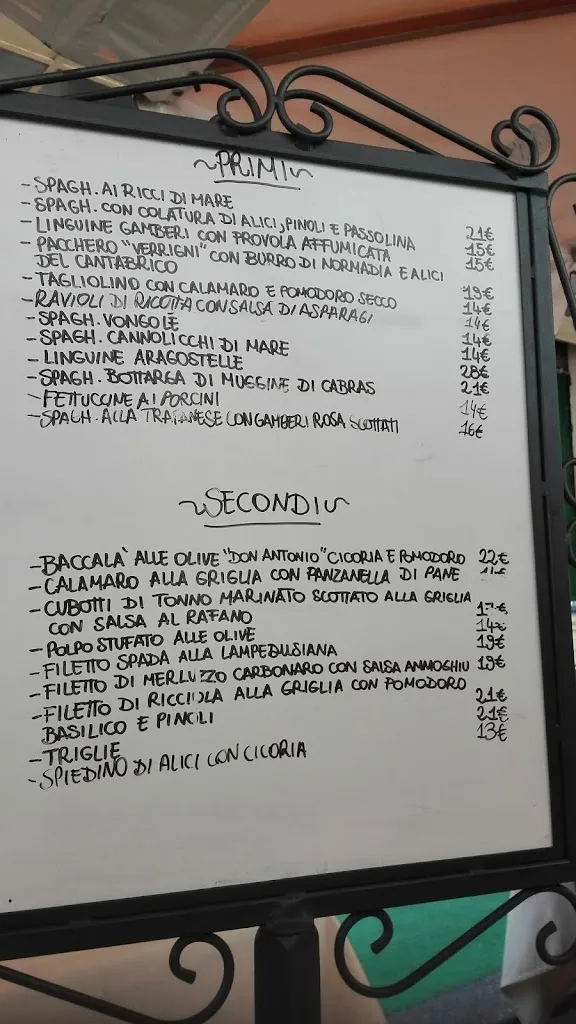 ~PRIMI~
- SPAGH. AI RICCI DI MARE 21€
- SPAGH. CON COLATURA DI ALICI, PINOLI E PASSOLINA 15€
- LINGUINE GAMBERI CON PROVOLA AFFUMICATA 15€
- PACCHERO "VERRIGNI" CON BURRO DI NORMADIA E ALICI
DEL CANTABRICO 19€
- TAGLIOLINO CON CALAMARO E POMODORO SECCO 14€
- RAVIOLI DI RICOTTA CON SALSA DI ASPARAGI 14€
- SPAGH. VONGOLE 14€
- SPAGH. CANNOLICCHI DI MARE 14€
- LINGUINE ARAGOSTELLE 28€
- SPAGH. BOTTARGA DI MUGGINE DI CABRAS 21€
- FETTUCCINE AI PORCINI 14€
- SPAGH. ALLA TRAPANESE CON GAMBERI ROSA SCOTTATI 16€
~SECONDI~
- BACCALA' ALLE OLIVE "DON ANTONIO" CICORIA E POMODORO 22€
- CALAMARO ALLA GRIGLIA CON PANZANELLA DI PANE
- CUBOTTI DI TONNO MARINATO SCOTTATO ALLA GRIGLIA
CON SALSA AL RAFANO 17€
- POLPO STUFATO ALLE OLIVE 14€
- FILETTO SPADA ALLA LAMPEDUSIANA 19€
- FILETTO DI MERLUZZO CARBONARO CON SALSA AMMOGHIU 19€
- FILETTO DI RICCIOLA ALLA GRIGLIA CON POMODORO
BASILICO E PINOLI 21€
- TRIGLIE 21€
- SPIEDINO DI ALICI CON CICORIA 13€